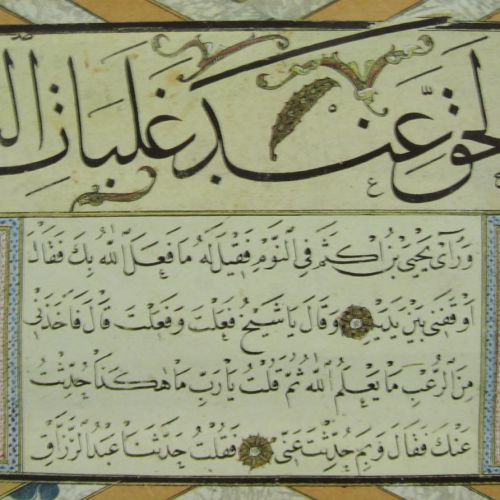 الحق عند غلبات
ورأى يحيى بن اكثم في النوم فقيل له ما فعل الله بك فقال
اوقفني بين يديه وقال يا شيخ فعلت وفعلت قال فاخذني
من الرعب ما يعلم الله ثم قلت يا رب ما هكذا حدثت
عنك فقال وبم حدثت عني فقلت حدثنا عبد الرزاق